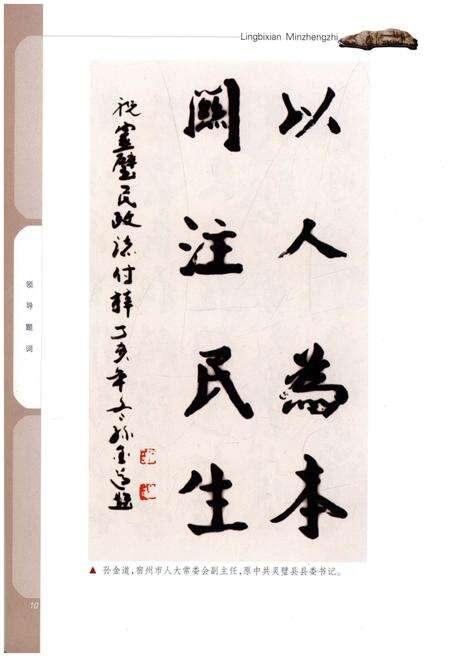 Lingbixian Minzhengzhi
以人為本
關注民生
祝靈璧民政志付梓丁亥年冬孙金道题
领导题词
▲ 孙金道，宿州市人大常委会副主任，原中共灵璧县县委书记。
10